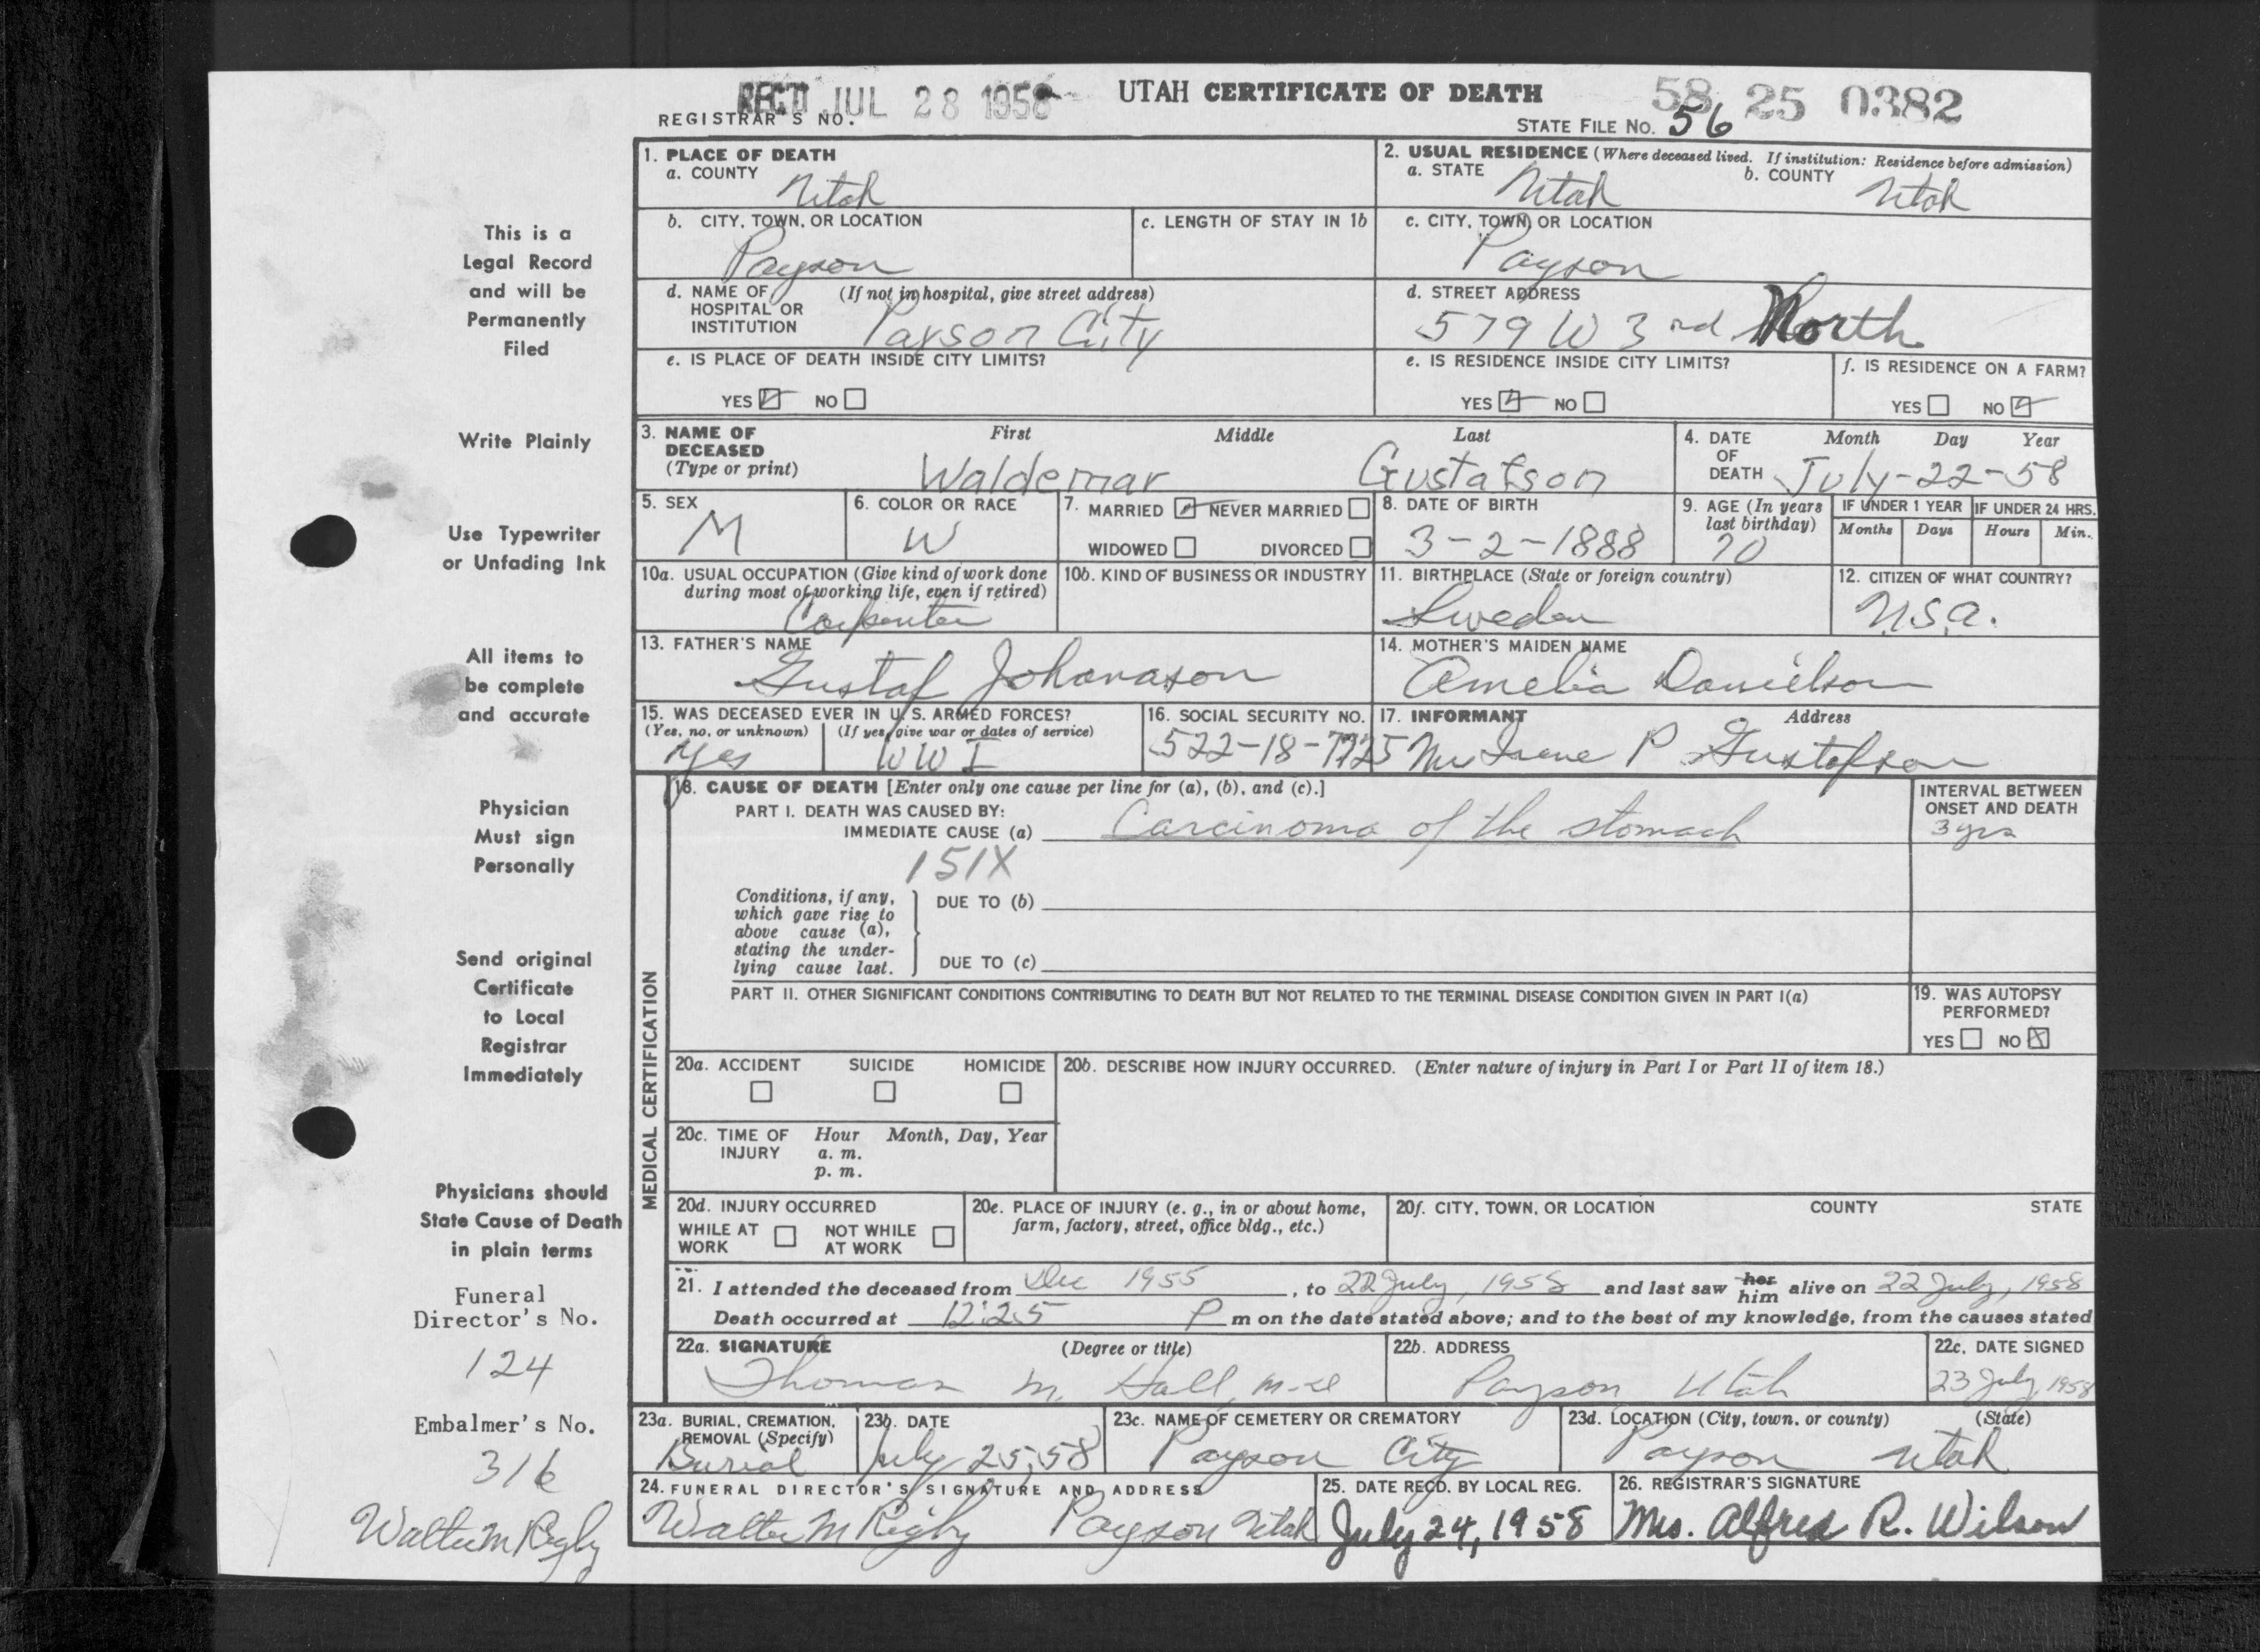 REC'D JUL 28 1958 UTAH CERTIFICATE OF DEATH 58 25 0382
REGISTRAR'S NO. STATE FILE NO. 56
1. PLACE OF DEATH
a. COUNTY Utah
2. USUAL RESIDENCE (Where deceased lived. If institution: Residence before admission)
a. STATE Utah b. COUNTY Utah
b. CITY, TOWN, OR LOCATION Payson
c. LENGTH OF STAY IN 1b
c. CITY, TOWN, OR LOCATION Payson
d. NAME OF (If not in hospital, give street address)
HOSPITAL OR
INSTITUTION Payson City
d. STREET ADDRESS
579 W 3rd North
e. IS PLACE OF DEATH INSIDE CITY LIMITS?
YES NO
e. IS RESIDENCE INSIDE CITY LIMITS?
YES NO
f. IS RESIDENCE ON A FARM?
YES NO
3. NAME OF DECEASED (Type or print)
First Middle Last
Waldemar Gustafson
4. DATE OF DEATH Month Day Year
July-22-58
5. SEX
M
6. COLOR OR RACE
W
7. MARRIED NEVER MARRIED
WIDOWED DIVORCED
8. DATE OF BIRTH
3-2-1888
9. AGE (In years last birthday)
70
IF UNDER 1 YEAR IF UNDER 24 HRS.
Months Days Hours Min.
10a. USUAL OCCUPATION (Give kind of work done
during most of working life, even if retired)
Carpenter
10b. KIND OF BUSINESS OR INDUSTRY
11. BIRTHPLACE (State or foreign country)
Sweden
12. CITIZEN OF WHAT COUNTRY?
U.S.A.
13. FATHER'S NAME
Gustaf Johanason
14. MOTHER'S MAIDEN NAME
Amelia Danielson
15. WAS DECEASED EVER IN U. S. ARMED FORCES?
(Yes, no, or unknown) (If yes, give war or dates of service)
Yes WW I
16. SOCIAL SECURITY NO.
522-18-7725
17. INFORMANT Address
Mrs Irene P Gustafson
18. CAUSE OF DEATH [Enter only one cause per line for (a), (b), and (c).]
PART I. DEATH WAS CAUSED BY:
IMMEDIATE CAUSE (a) Carcinoma of the stomach
INTERVAL BETWEEN
ONSET AND DEATH
3 yrs
151X
Conditions, if any,
which gave rise to
above cause (a),
stating the under-
lying cause last.
DUE TO (b)
DUE TO (c)
PART II. OTHER SIGNIFICANT CONDITIONS CONTRIBUTING TO DEATH BUT NOT RELATED TO THE TERMINAL DISEASE CONDITION GIVEN IN PART I(a)
19. WAS AUTOPSY
PERFORMED?
YES NO
MEDICAL CERTIFICATION
20a. ACCIDENT SUICIDE HOMICIDE
20b. DESCRIBE HOW INJURY OCCURRED. (Enter nature of injury in Part I or Part II of item 18.)
20c. TIME OF INJURY Hour Month, Day, Year
a. m.
p. m.
20d. INJURY OCCURRED
WHILE AT WORK NOT WHILE AT WORK
20e. PLACE OF INJURY (e. g., in or about home,
farm, factory, street, office bldg., etc.)
20f. CITY, TOWN, OR LOCATION COUNTY STATE
21. I attended the deceased from Dec 1955, to 22 July, 1958 and last saw her him alive on 22 July, 1958
Death occurred at 12:25 P m on the date stated above; and to the best of my knowledge, from the causes stated
22a. SIGNATURE (Degree or title)
Thomas M. Hall, M-D
22b. ADDRESS
Payson Utah
22c. DATE SIGNED
23 July 1958
23a. BURIAL, CREMATION,
REMOVAL (Specify)
Burial
23b. DATE
July 25, 58
23c. NAME OF CEMETERY OR CREMATORY
Payson City
23d. LOCATION (City, town, or county) (State)
Payson Utah
24. FUNERAL DIRECTOR'S SIGNATURE AND ADDRESS
Walter M Rigby Payson Utah
25. DATE RECD. BY LOCAL REG.
July 24, 1958
26. REGISTRAR'S SIGNATURE
Mrs. Alfred R. Wilson
This is a
Legal Record
and will be
Permanently
Filed
Write Plainly
Use Typewriter
or Unfading Ink
All items to
be complete
and accurate
Physician
Must sign
Personally
Send original
Certificate
to Local
Registrar
Immediately
Physicians should
State Cause of Death
in plain terms
Funeral
Director's No.
124
Embalmer's No.
316
Walter M Rigby